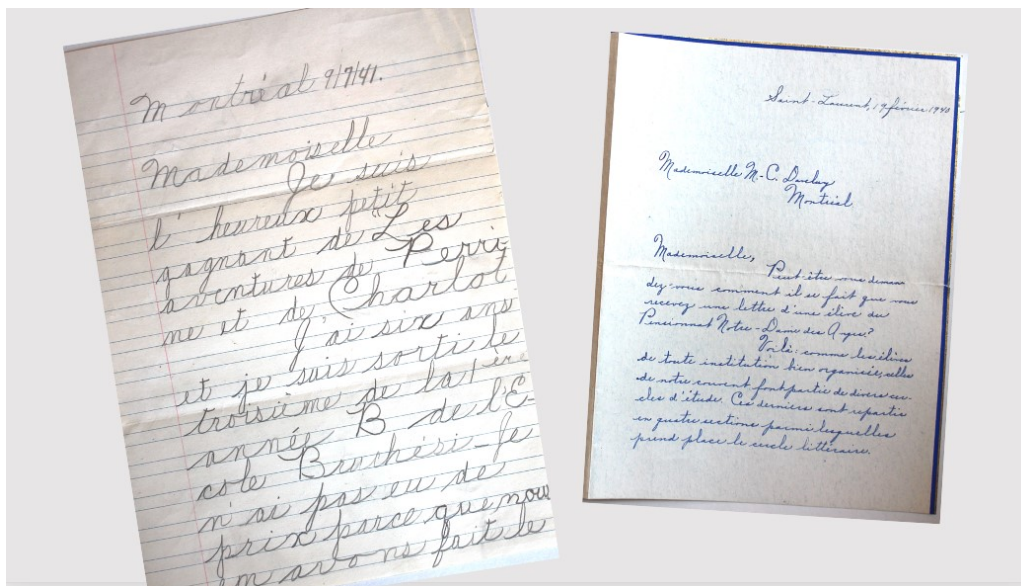 Montréal 9/7/41.
Mademoiselle
Je suis
l'heureux petit
gagnant de "Les
aventures de Perri
ne et de Charlot
J'ai six ans
et je suis sorti le
troisième de la 1ère
année B de l'É-
cole Bruchési-Je
n'ai pas eu de
prix parce que nous
en avons fait le
Saint-Laurent, 19 février 1940
Mademoiselle M-C. Daveluy
Montréal
Mademoiselle,
Peut-être vous deman
dez-vous comment il se fait que vous
recevez une lettre d'une élève du
Pensionnat Notre-Dame des Anges?
Voilà: comme les élèves
de toute institution bien organisée, celles
de notre couvent font partie de divers cer-
cles d'étude. Ces derniers sont répartis
en quatre sections parmi lesquelles
prend place le cercle littéraire.